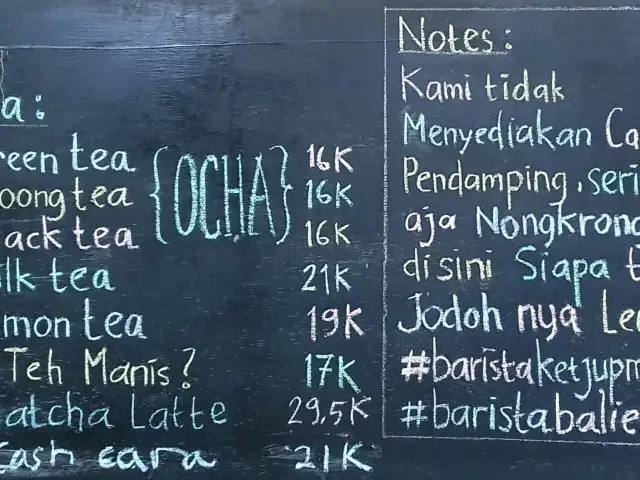 a:
reen tea {OCHA} 16K
oong tea 16K
ack tea 16K
ilk tea 21K
mon tea 19K
Teh Manis? 17K
atcha Latte 29,5K
Cash cara 21K
Notes:
Kami tidak
Menyediakan Ca
Pendamping, seri
aja Nongkrong
disini Siapa t
Jodoh nya Le
#baristaketjupm
#baristabalie